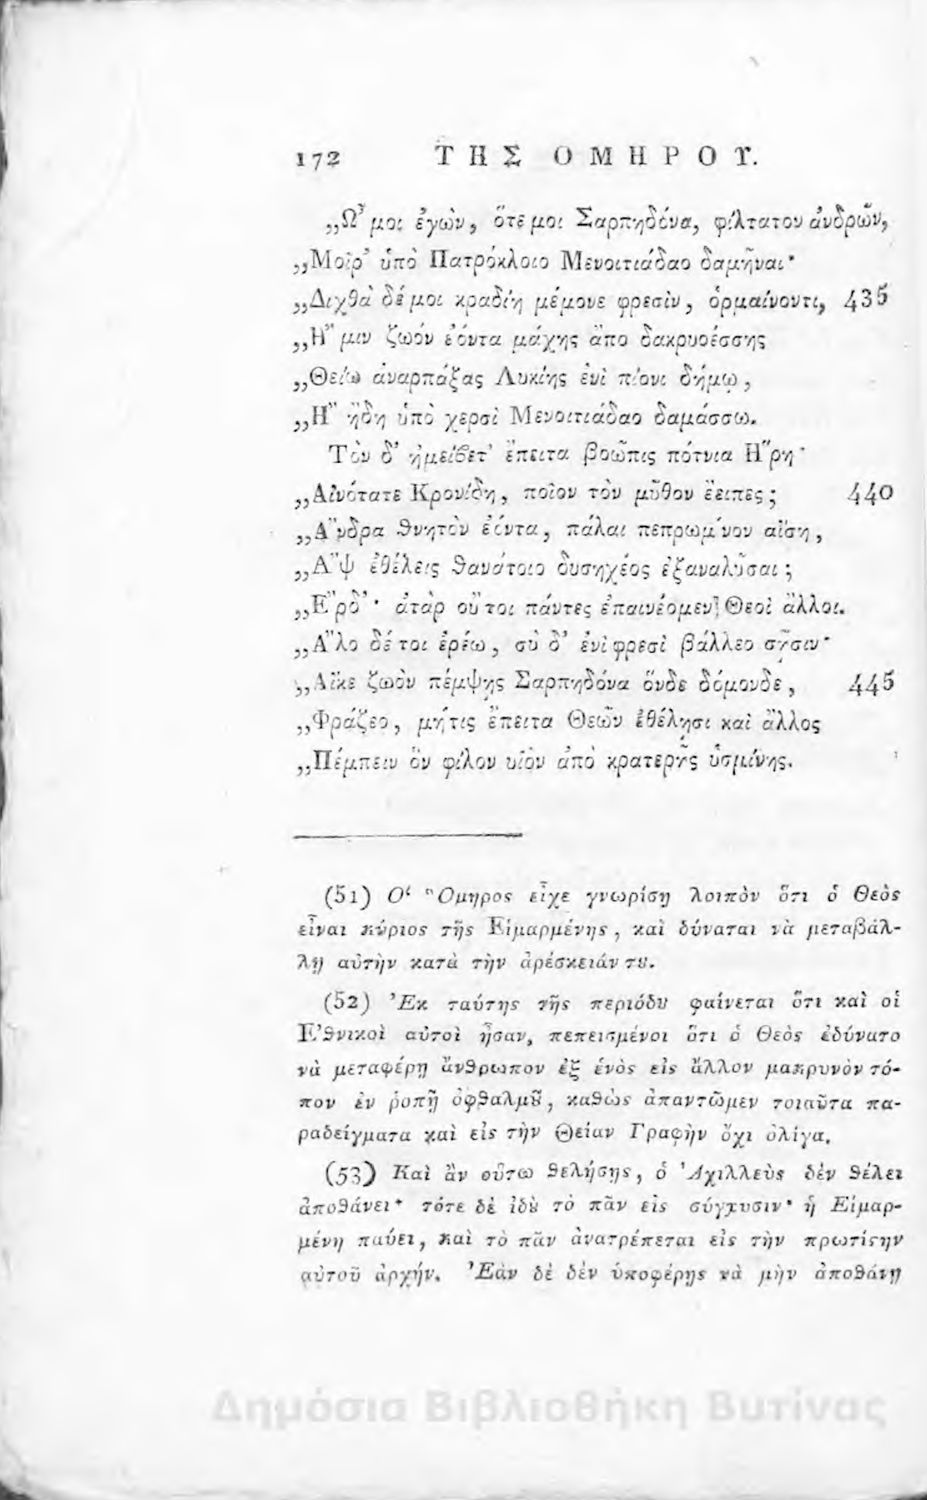 172 ΤΗΣ ΟΜΗΡΟΥ.
„Ω᾽ μοι ἐγὼν, ὅτε μοι Σαρπηδόνα, φίλτατον ἀνδρῶν,
„Μοῖρ᾽ ὑπὸ Πατρόκλοιο Μενοιτιάδαο δαμῆναι·
„Διχθὰ δέ μοι κραδίη μέμονε φρεσὶν, ὁρμαίνοντι, 435
„Η῎ μιν ζωὸν ἐόντα μάχης ἄπο δακρυοέσσης
„Θείω ἀναρπάξας Λυκίης ἐνὶ πίονι δήμῳ,
„Η῎ ἤδη ὑπὸ χερσὶ Μενοιτιάδαο δαμάσσω.
Τὸν δ᾽ ἠμείβετ᾽ ἔπειτα βοῶπις πότνια Η῞ρη·
„Αἰνότατε Κρονίδη, ποῖον τὸν μῦθον ἔειπες; 440
„Α῎νδρα ϑνητὸν ἐόντα, πάλαι πεπρωμένον αἴσῃ,
„Α῎ψ ἐθέλεις ϑανάτοιο δυσηχέος ἐξαναλῦσαι;
„Ε῎ρδ᾽· ἀτὰρ οὔτοι πάντες ἐπαινέομεν Θεοὶ ἄλλοι.
„Α῎λο δέ τοι ἐρέω, σὺ δ᾽ ἐνὶ φρεσὶ βάλλεο σῇσιν·
„Αἴκε ζωὸν πέμψῃς Σαρπηδόνα ὅνδε δόμονδε, 445
„Φράζεο, μήτις ἔπειτα Θεῶν ἐθέλῃσι καὶ ἄλλος
„Πέμπειν ὃν φίλον υἱὸν ἀπὸ κρατερῆς ὑσμίνης.
(51) Ο῾ ῞Ομηρος εἶχε γνωρίσῃ λοιπὸν ὅτι ὁ Θεὸς
εἶναι κύριος τῆς Εἱμαρμένης, καὶ δύναται νὰ μεταβάλ-
λῃ αὐτὴν κατὰ τὴν ἀρέσκειάν τȣ.
(52) ᾽Εκ ταύτης τῆς περιόδȣ φαίνεται ὅτι καὶ οἱ
Ε᾽ϑνικοὶ αὐτοὶ ἦσαν, πεπεισμένοι ὅτι ὁ Θεὸς ἐδύνατο
νὰ μεταφέρῃ ἄνϑρωπον ἐξ ἑνὸς εἰς ἄλλον μακρυνὸν τό-
πον ἐν ῥοπῇ ὀφϑαλμȣ͂, καϑὼς ἀπαντῶμεν τοιαῦτα πα-
ραδείγματα καὶ εἰς τὴν Θείαν Γραφὴν ὄχι ὀλίγα.
(53) Καὶ ἂν οὕτω ϑελήσῃς, ὁ ᾽Αχιλλεὺς δὲν ϑέλει
ἀποϑάνει· τότε δὲ ἰδȣ̀ τὸ πᾶν εἰς σύγχυσιν· ἡ Εἱμαρ-
μένη παύει, καὶ τὸ πᾶν ἀνατρέπεται εἰς τὴν πρωτίςην
αὐτοῦ ἀρχήν. ᾽Εὰν δὲ δὲν ὑποφέρῃς νὰ μὴν ἀποϑάνῃ
Δημόσια Βιβλιοθήκη Βυτίνας